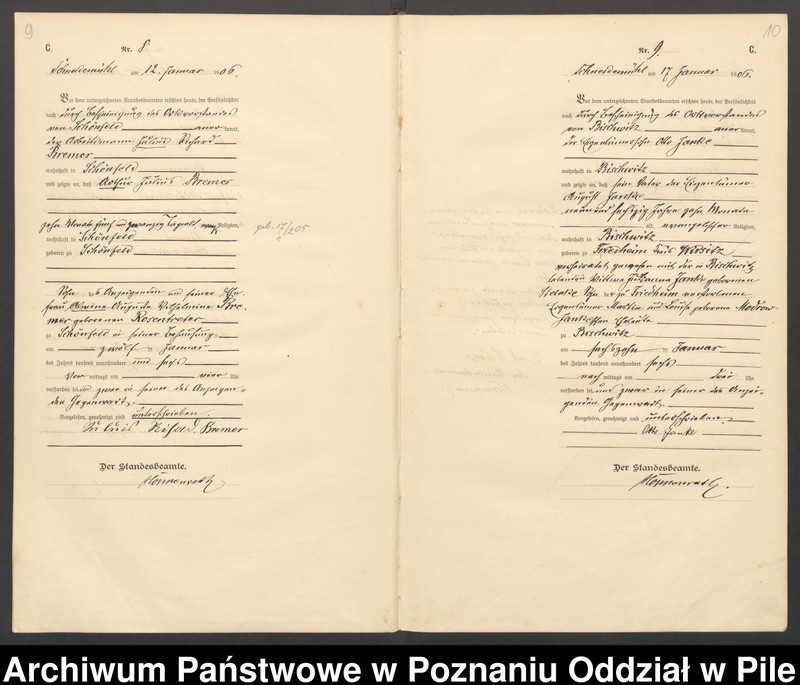 9
C.
Nr. 8
Schneidemühl am 12. Januar 1906.
Vor dem unterzeichneten Standesbeamten erschien heute, der Persönlichkeit
nach durch Bescheinigung des Ortsvorstandes
von Schönfeld anerkannt,
der Arbeitsmann Julius Richard
Bremer
wohnhaft in Schönfeld
und zeigte an, daß Arthur Julius Bremer
zehn Monate fünf und zwanzig Religion,
wohnhaft in Schönfeld
geboren zu Schönfeld
geb. 17/2 05
Sohn des Anzeigenden und seiner Ehe-
frau Auguste Wilhelmine Bre-
mer geborenen Rosentreter
zu Schönfeld in seiner Behausung
am zwölften Januar
des Jahres tausend neunhundert und sechs
Vor mittags um vier Uhr
verstorben sei und zwar in seiner des Anzeigen-
den Gegenwart.
Vorgelesen, genehmigt und unterschrieben.
Julius Richard Bremer
Der Standesbeamte.
10
Nr. 9.
C.
Schneidemühl am 17 Januar 1906.
Vor dem unterzeichneten Standesbeamten erschien heute, der Persönlichkeit
nach durch Bescheinigung des Ortsvorstandes
von Bischwitz anerkannt,
der Eigentümersohn Otto Janke
wohnhaft in Bischwitz
und zeigte an, daß sein Vater der Eigentümer
August Janke
neun und sechzig Jahre zehn Monate
alt, evangelischer Religion,
wohnhaft in Bischwitz
geboren zu Friedheim Kreis Wirsitz
verheiratet gewesen mit der in Bischwitz
lebenden Witwe Julianna Janke geborenen
Sohn der zu Friedheim verstorbenen
Eigentümer Martin und Luise geborene Modrow-
Janke'schen Eheleute
zu Bischwitz
am sechszehn ten Januar
des Jahres tausend neunhundert sechs
nach mittags um drei Uhr
verstorben sei und zwar in seiner des Anzei-
genden Gegenwart.
Vorgelesen, genehmigt und unterschrieben.
Otto Janke
Der Standesbeamte.
Archiwum Państwowe w Poznaniu Oddział w Pile